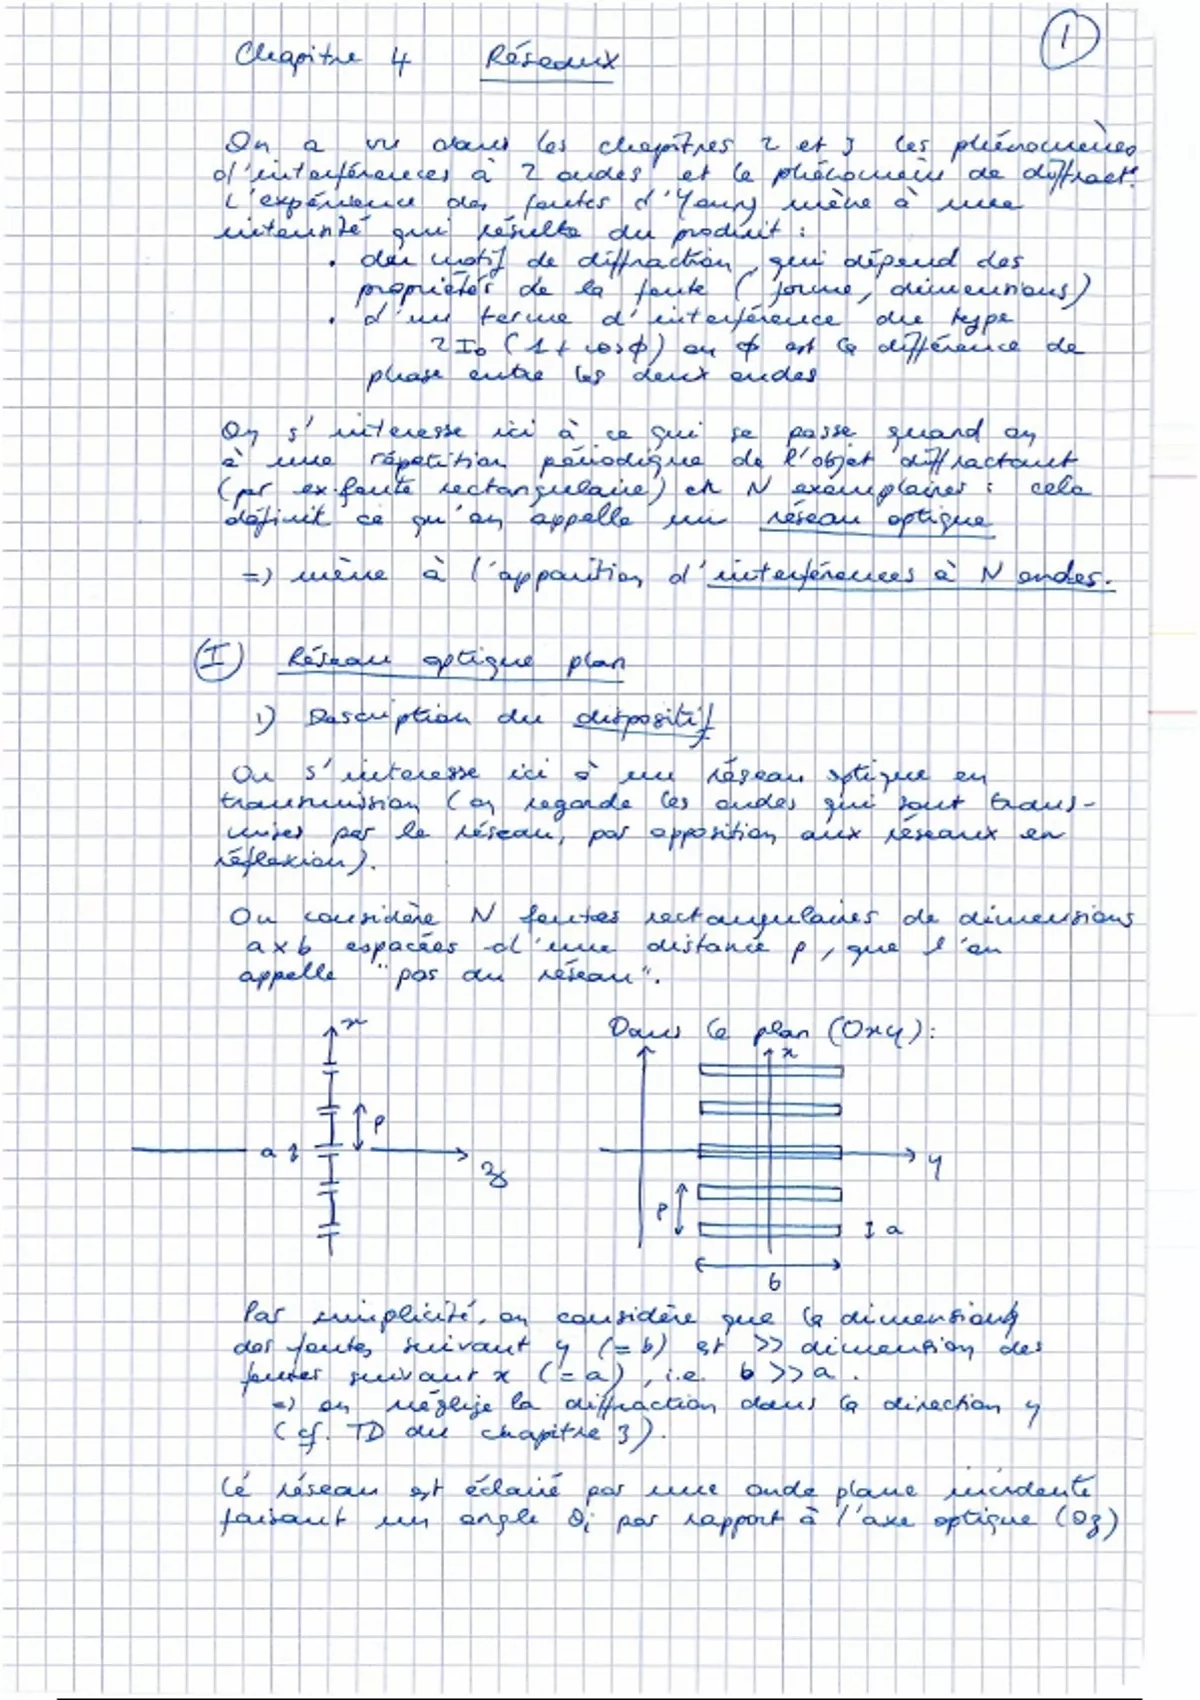 1
Chapitre 4 Réseaux
On a vu dans les chapitres 2 et 3 les phénomènes
d'interférences à 2 ondes et le phénomène de diffract°.
L'expérience des fentes d'Young mène à une
intensité qui résulte du produit :
• du motif de diffraction, qui dépend des
propriétés de la fente (forme, dimensions)
• d'un terme d'interférence du type
2I₀ (1 + cosϕ) où ϕ est la différence de
phase entre les deux ondes
On s'interesse ici à ce qui se passe quand on
a une répétition périodique de l'objet diffractant
(par ex. fente rectangulaire) en N exemplaires : cela
définit ce qu'on appelle un réseau optique
=> mène à l'apparition d'interférences à N ondes.
I Réseau optique plan
1) Description du dispositif
On s'interesse ici à un réseau optique en
transmission (on regarde les ondes qui sont trans-
mises par le réseau, par opposition aux réseaux en
réflexion).
On considère N fentes rectangulaires de dimensions
a×b espacées d'une distance p, que l'on
appelle "pas du réseau".
x
Dans le plan (Oxy) :
x
p
a
z
y
p
a
b
Par simplicité, on considère que la dimension
des fentes suivant y (= b) est >> dimension des
fentes suivant x (= a), i.e. b >> a.
=> on néglige la diffraction dans la direction y
(cf. TD du chapitre 3).
Le réseau est éclairé par une onde plane incidente
faisant un angle θi par rapport à l'axe optique (Oz)